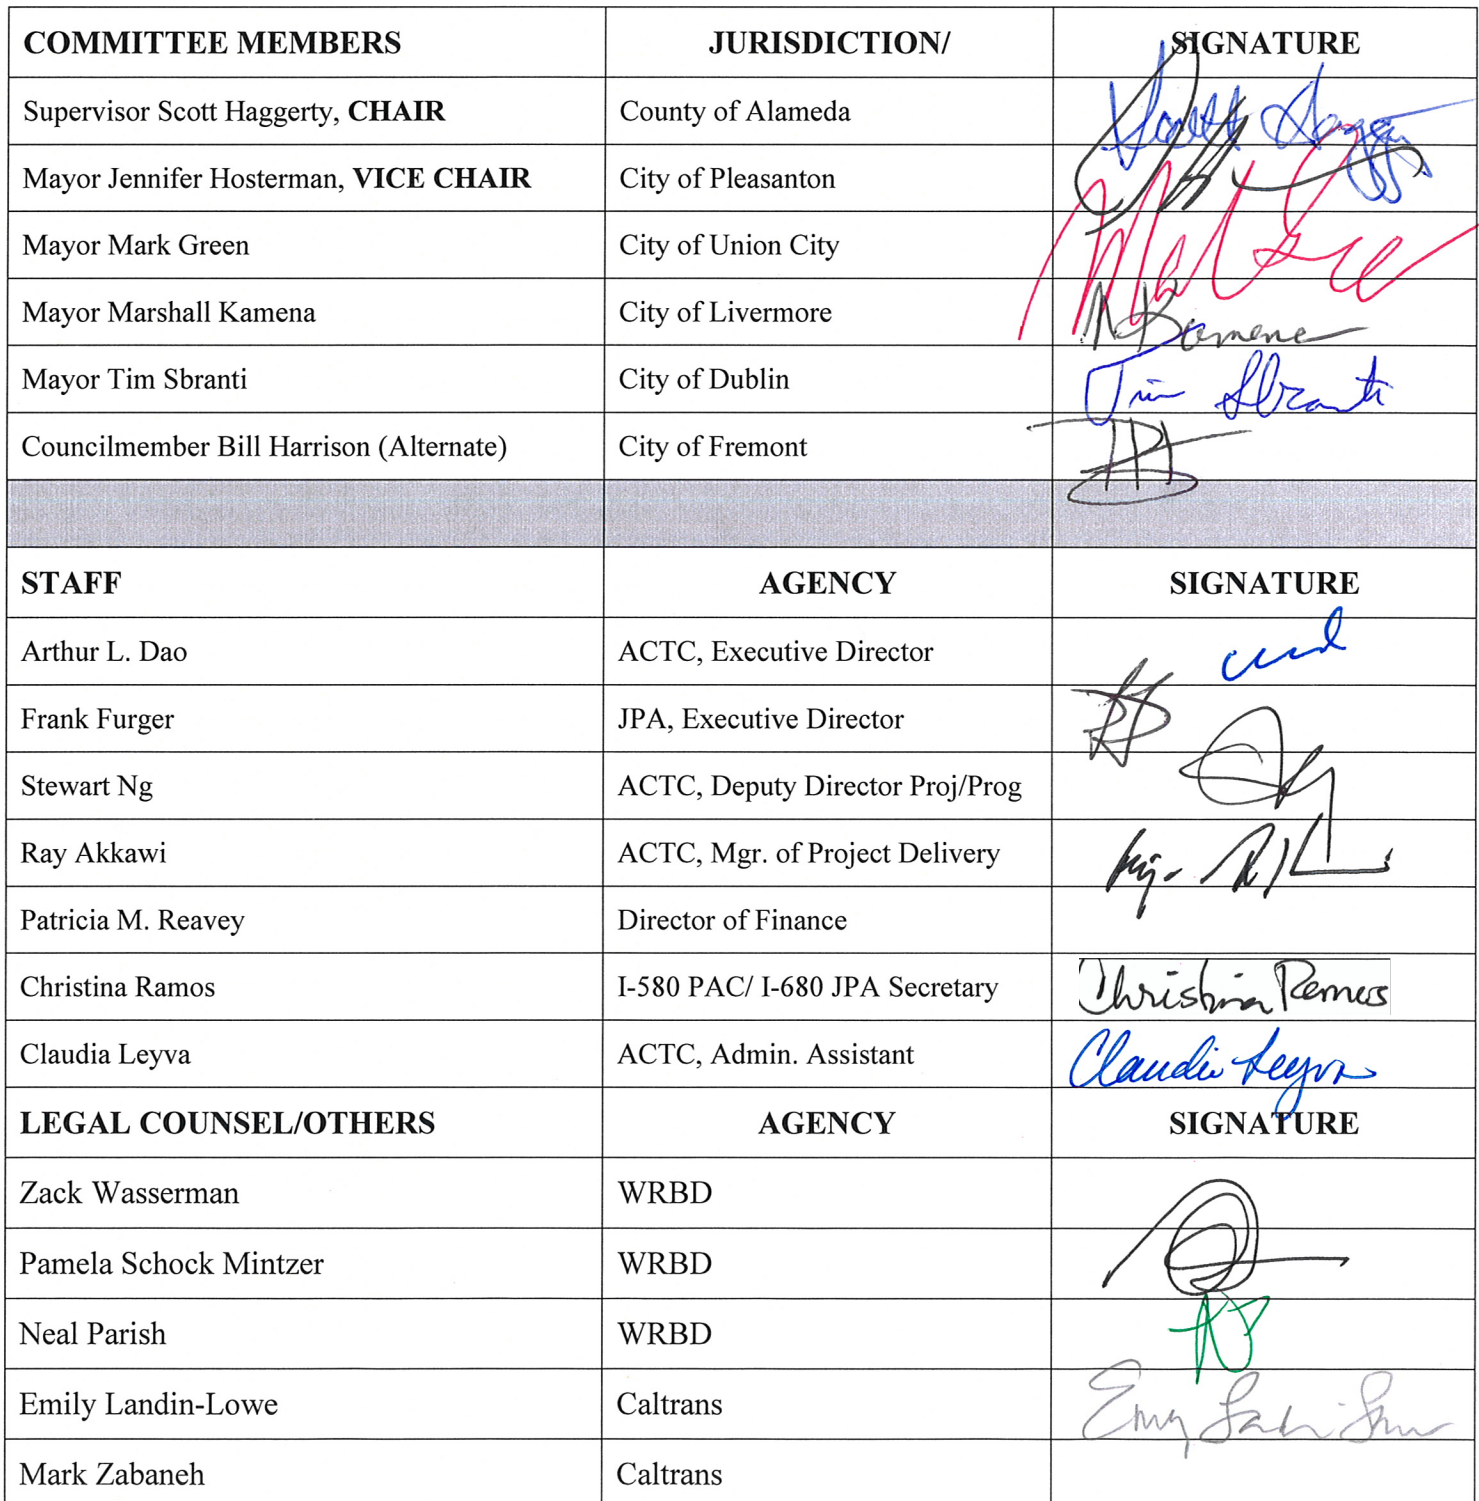 COMMITTEE MEMBERS JURISDICTION/ SIGNATURE
Supervisor Scott Haggerty, CHAIR County of Alameda Scott Haggerty
Mayor Jennifer Hosterman, VICE CHAIR City of Pleasanton
Mayor Mark Green City of Union City
Mayor Marshall Kamena City of Livermore M Kamena
Mayor Tim Sbranti City of Dublin Tim Sbranti
Councilmember Bill Harrison (Alternate) City of Fremont
STAFF AGENCY SIGNATURE
Arthur L. Dao ACTC, Executive Director
Frank Furger JPA, Executive Director
Stewart Ng ACTC, Deputy Director Proj/Prog
Ray Akkawi ACTC, Mgr. of Project Delivery
Patricia M. Reavey Director of Finance
Christina Ramos I-580 PAC/ I-680 JPA Secretary Christina Ramos
Claudia Leyva ACTC, Admin. Assistant Claudia Leyva
LEGAL COUNSEL/OTHERS AGENCY SIGNATURE
Zack Wasserman WRBD
Pamela Schock Mintzer WRBD
Neal Parish WRBD
Emily Landin-Lowe Caltrans
Mark Zabaneh Caltrans